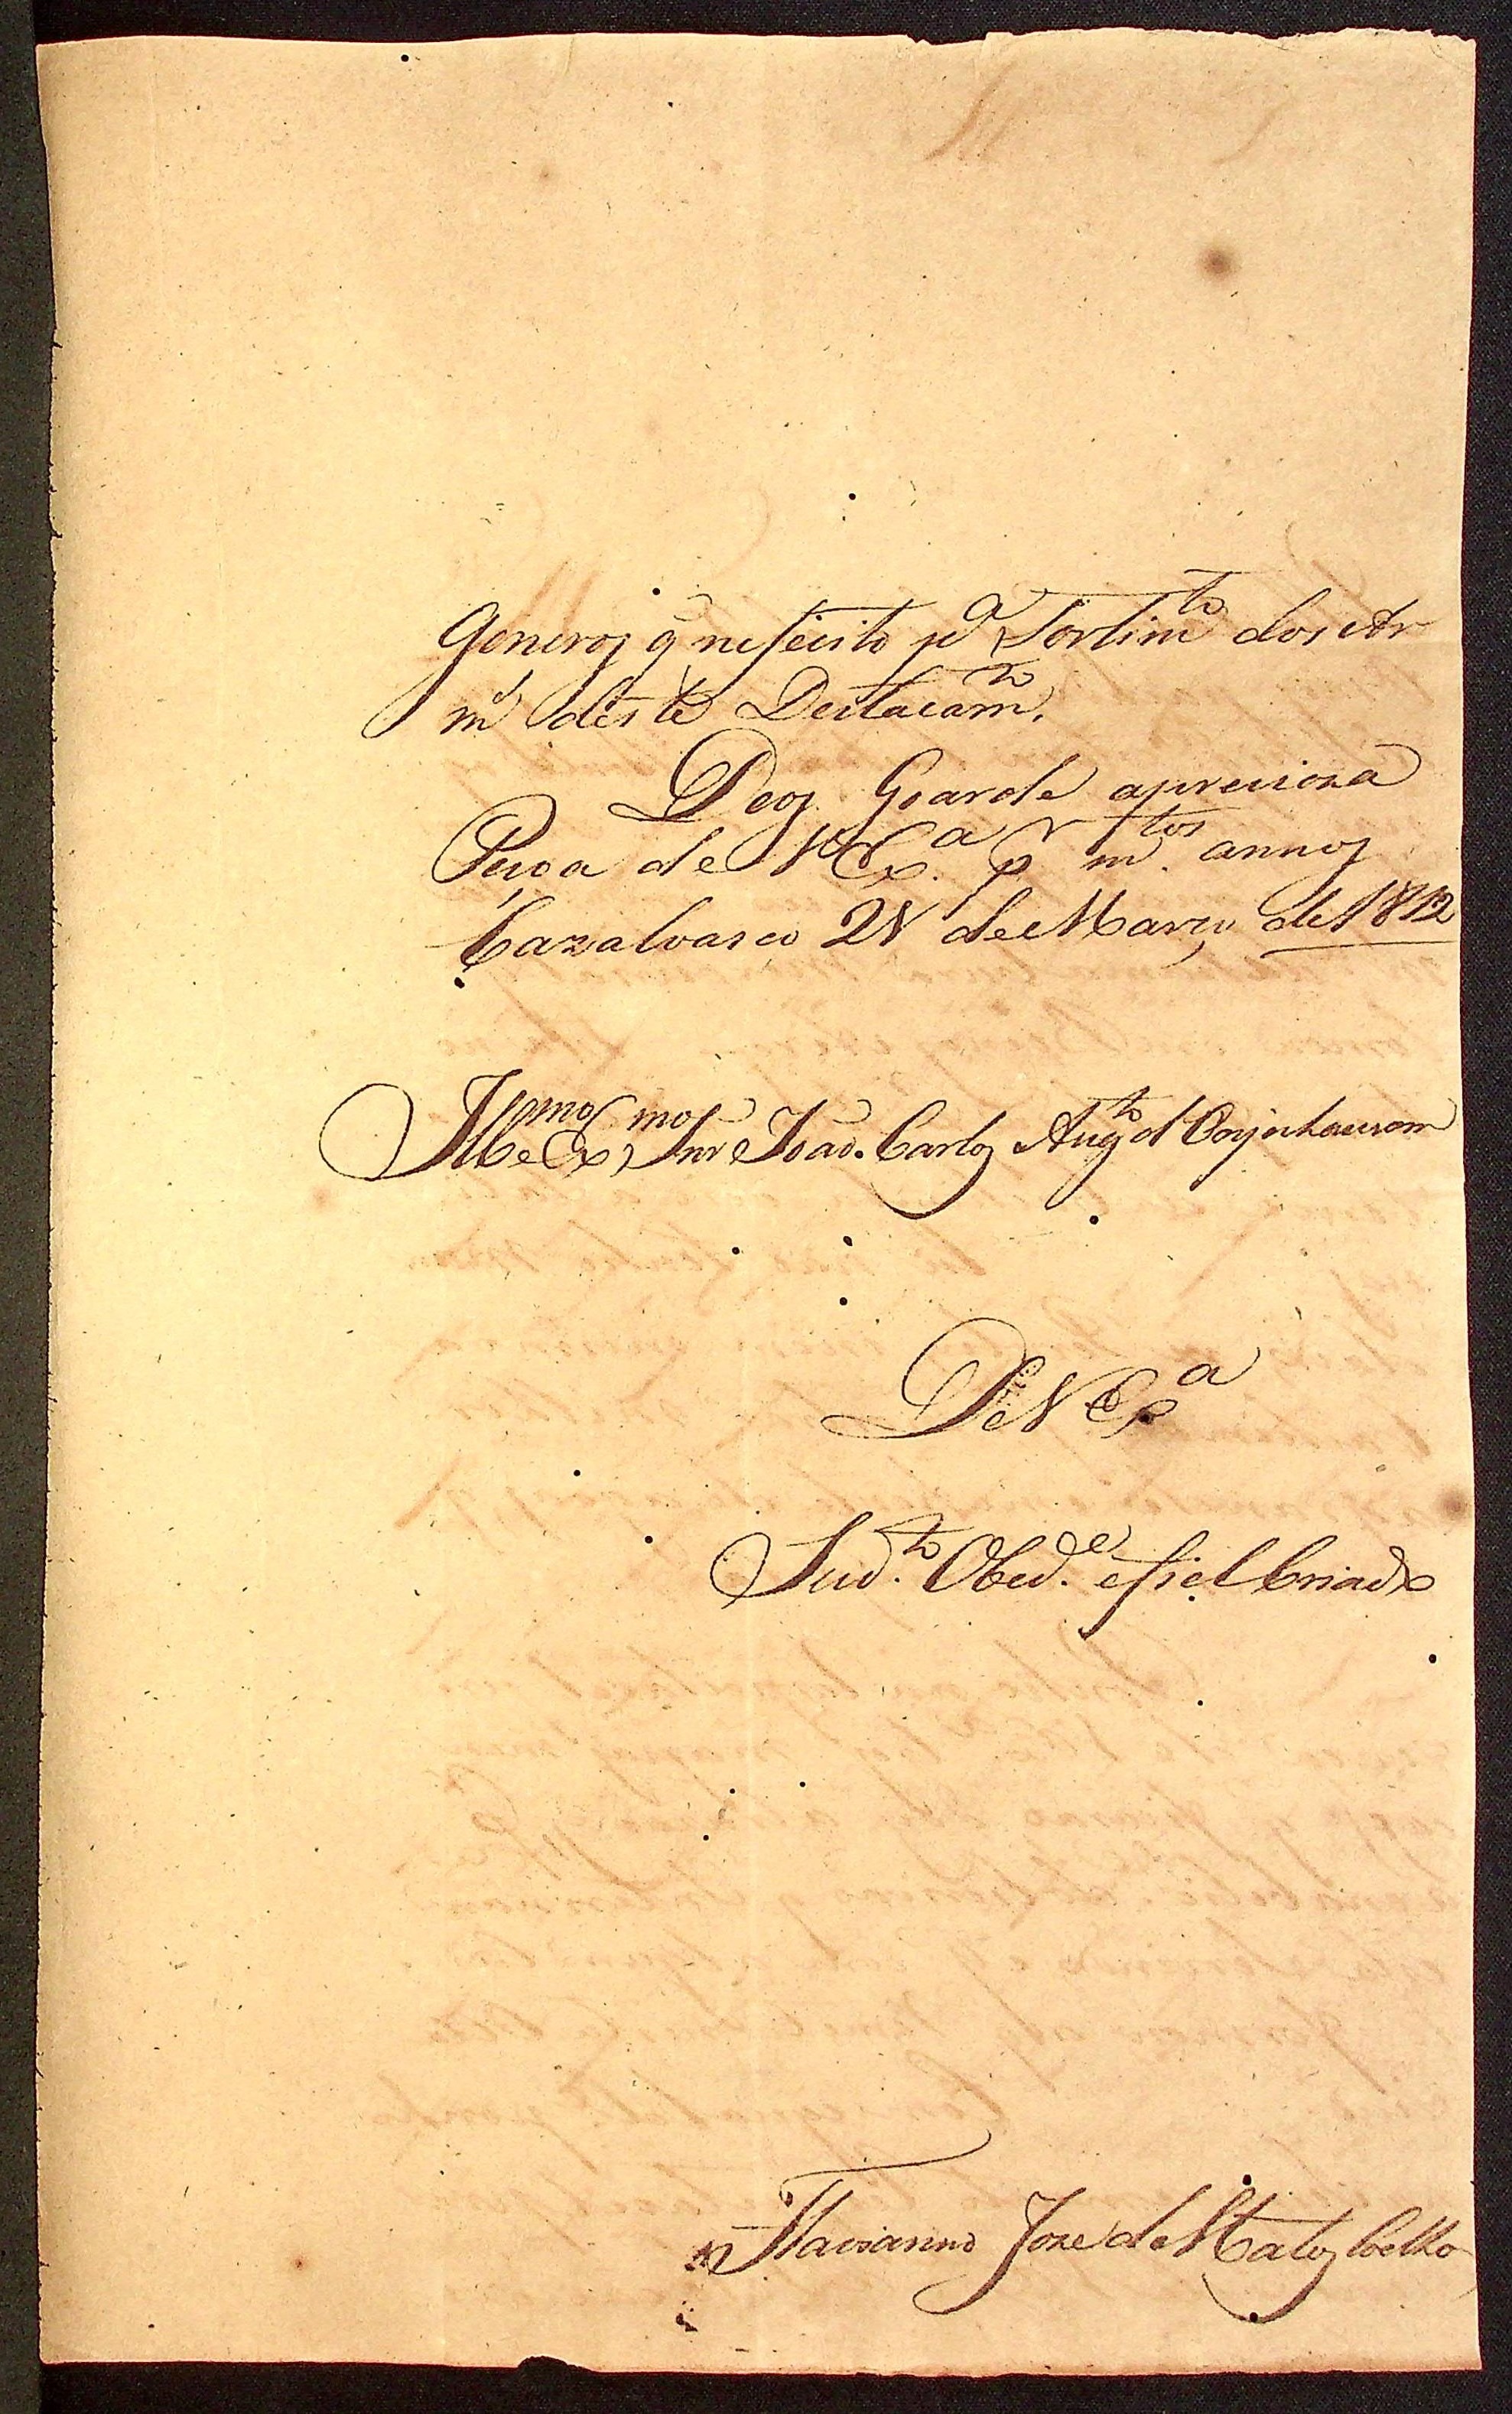 Generos q̃ nesecito p.ª Sortim.to dos Ar
m.s deste Destacam.to
Deos Goarde aprecioza
Pesoa de V Ex.ª p.r m.tos annos
Cazalvasco 28 de Março de 1812
Ill.mo e Ex.mo Snr João Carlos Aug.to d'Oeynhausem
De V Ex.ª
Sud.to Obed.e e fiel Criado
Flavianno Joze de Matos Coelho